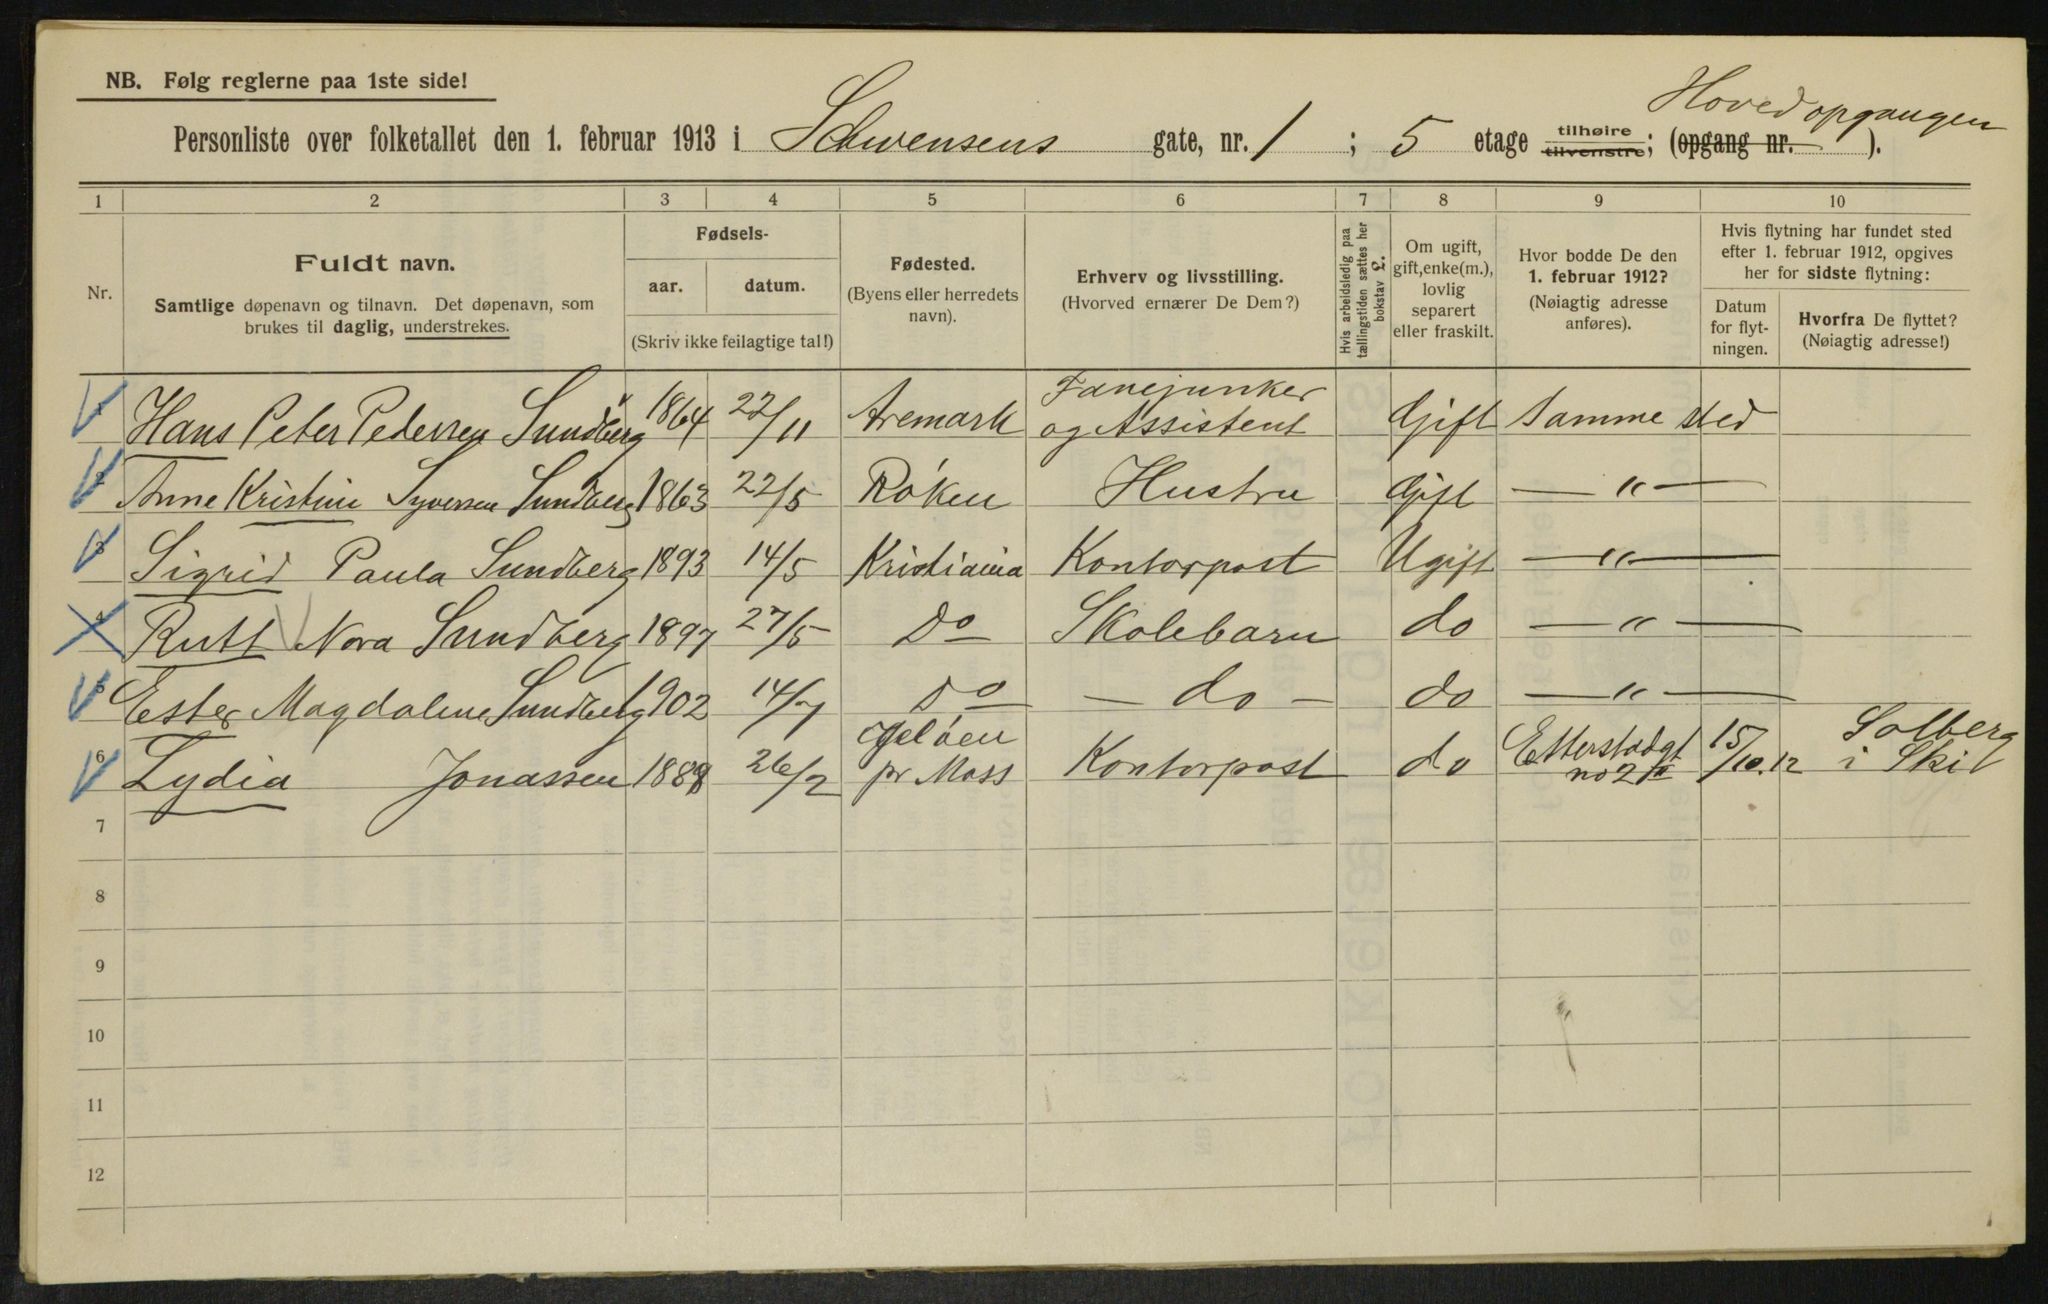 NB. Følg reglerne paa 1ste side!
Hovedopgangen
Personliste over folketallet den 1. februar 1913 i Schwensens gate, nr. 1 ; 5 etage tilhøire tilvenstre; (opgang nr. ).
1 2 3 4 5 6 7 8 9 10
Nr.
Fuldt navn.
Samtlige døpenavn og tilnavn. Det døpenavn, som
brukes til daglig, understrekes.
Fødsels-
aar. datum.
(Skriv ikke feilagtige tal!)
Fødested.
(Byens eller herredets
navn).
Erhverv og livsstilling.
(Hvorved ernærer De Dem?)
Hvis arbeidsledig paa
tællingstiden sættes her
bokstav L.
Om ugift,
gift, enke(m.),
lovlig
separert
eller fraskilt.
Hvor bodde De den
1. februar 1912?
(Nøiagtig adresse
anføres).
Hvis flytning har fundet sted
efter 1. februar 1912, opgives
her for sidste flytning:
Datum
for flyt-
ningen.
Hvorfra De flyttet?
(Nøiagtig adresse!)
1 Hans Peter Pedersen Sundberg 1864 22/11 Aremark Fanejunker og Assistent Gift Samme sted
2 Anne Kristine Syversen Sundberg 1863 22/5 Røken Hustru Gift — " —
3 Sigrid Paula Sundberg 1893 14/5 Kristiania Kontorpost Ugift — " —
4 Rutt Nora Sundberg 1897 27/5 Do Skolebarn do — " —
5 Ester Magdalene Sundberg 1902 14/7 Do — do — do — " —
6 Lydia Jonassen 1888 26/2 Jeløen pr Moss Kontorpost do Etterstadgt no 2 15/10.12 Solberg i Ski
7
8
9
10
11
12